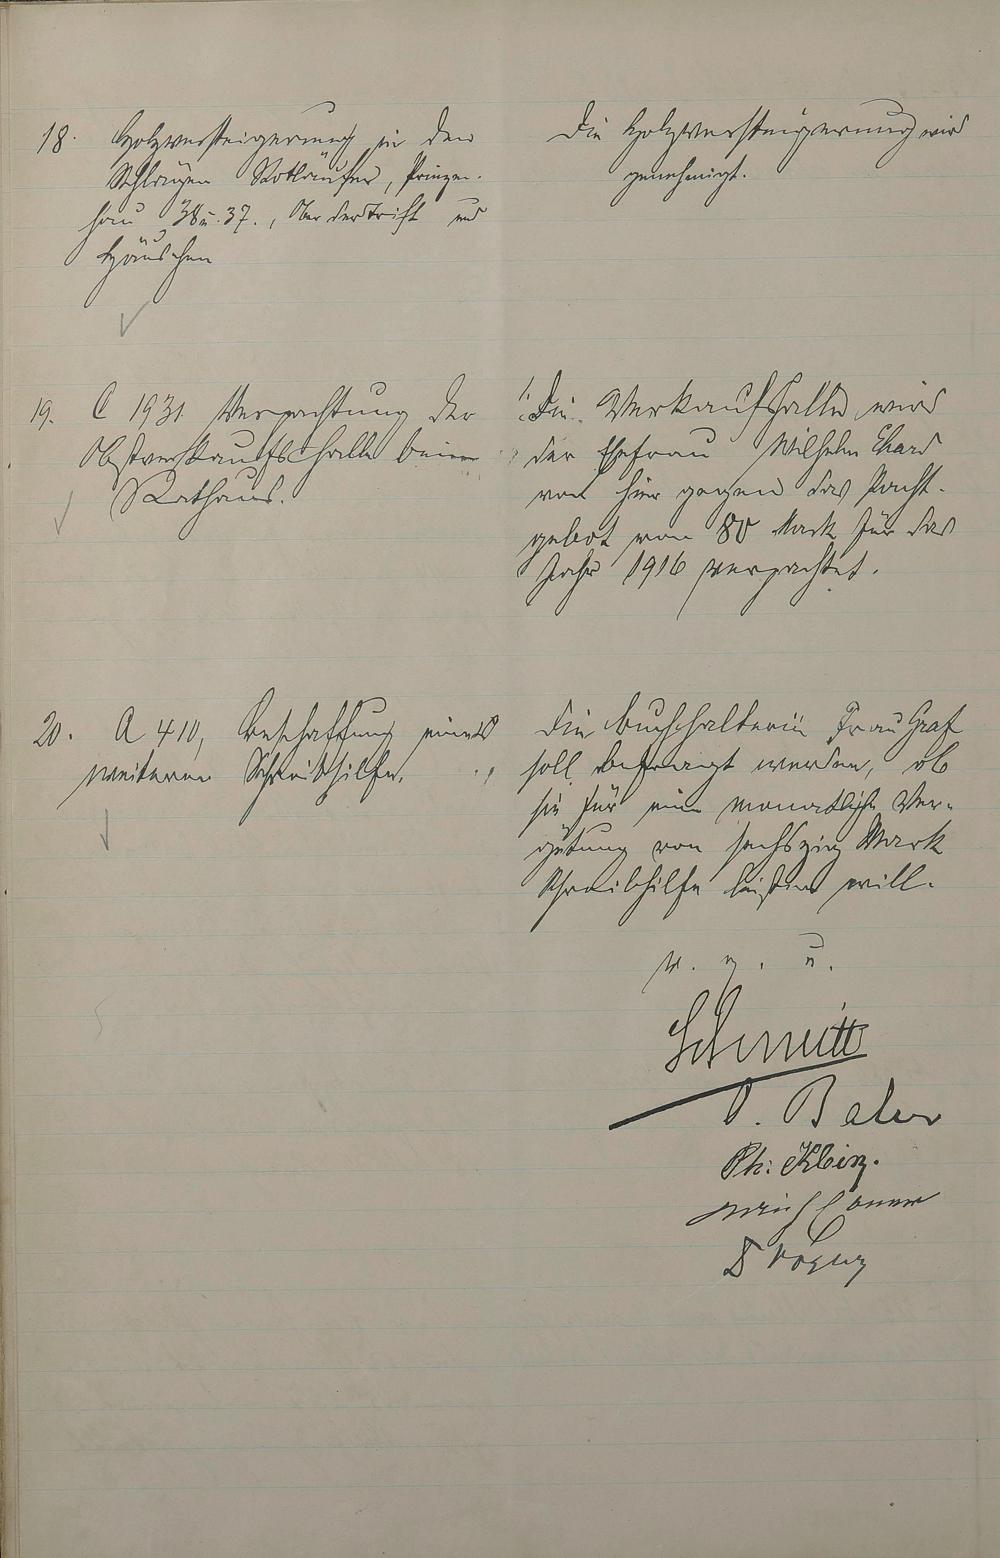 18. Holzversteigerung in den
Schlägen Rotläufer, Prinzen-
hau 36 u. 37., Ober der Trift und
Häuschen
Die Holzversteigerung wird
genehmigt.
19. C 1931 Verpachtung der
Obstverkaufshalle beim
Rathaus.
Die Verkaufshalle wird
der Ehefrau Wilhelm Ehard
von hier gegen das Pacht-
gebot von 80 Mark für das
Jahr 1916 verpachtet.
20. A 410, Beschaffung einer
weiteren Schreibhilfe.
Die Buchhalterin Frau Graf
soll befragt werden, ob
sie für eine monatliche Ver-
gütung von sechszig Mark
Schreibhilfe leisten will.
v. g. u.
Schmitt
Ph. Klein.